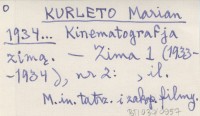 KURLETO Marian
1934... Kinematografja
zimą. — Zima 1 (1933-
-1934), nr 2: , il.
M. in. tatrz. i zakop. filmy.